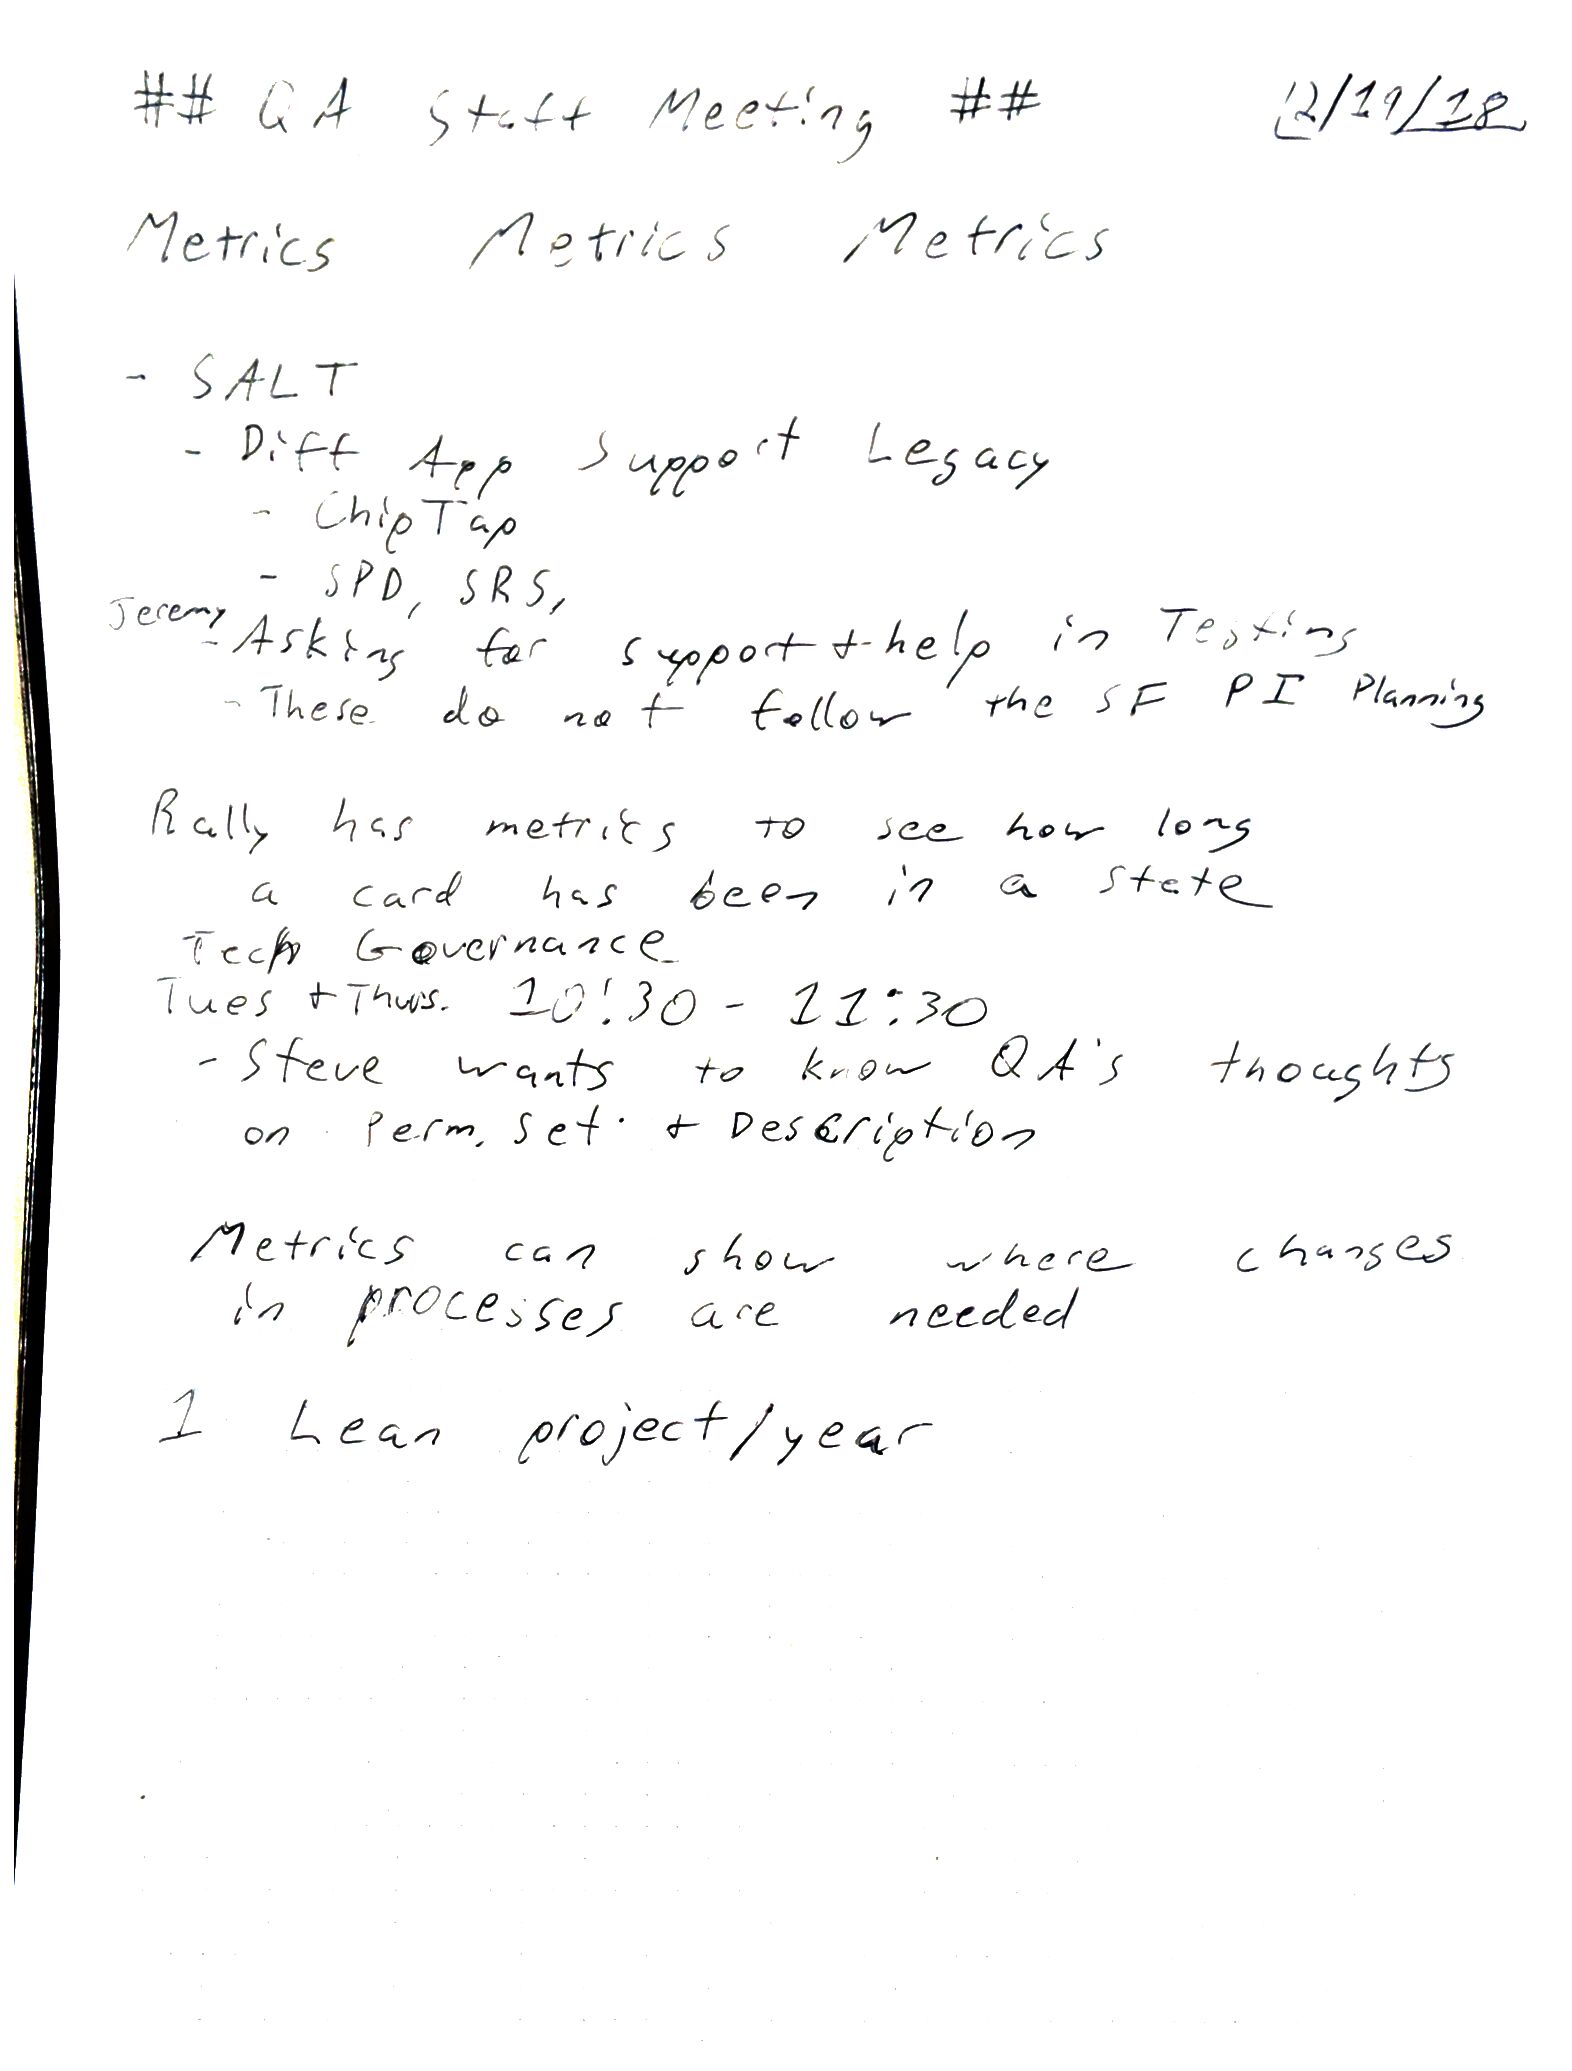 ## QA Staff Meeting ## 12/19/18
Metrics Metrics Metrics
- SALT
- Diff App Support Legacy
- ChipTap
- SPD, SRS,
Jeremy - Asking for support + help in Testing
- These do not follow the SF PI Planning
Rally has metrics to see how long
a card has been in a state
Tech Governance
Tues + Thurs. 10:30 - 11:30
- Steve wants to know QA's thoughts
on Perm. Set. + Description
Metrics can show where changes
in processes are needed
1 Lean project/year